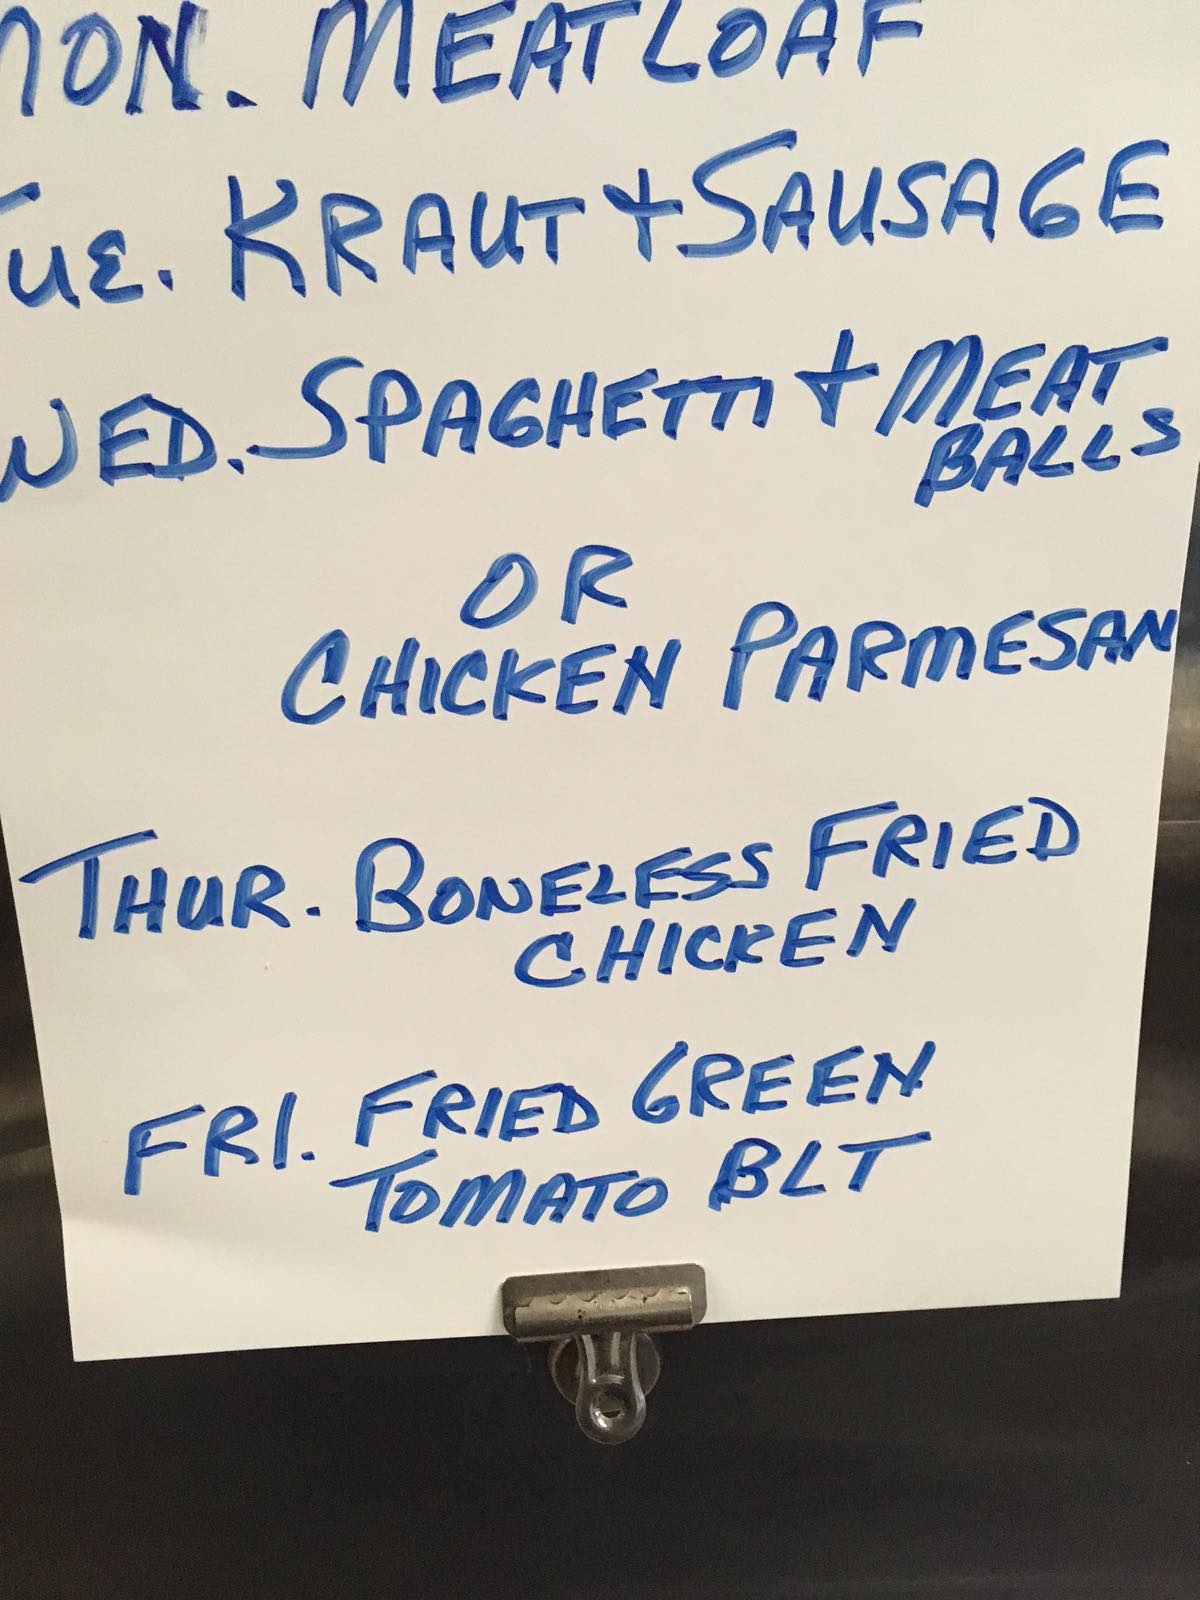 MON. MEATLOAF
TUE. KRAUT + SAUSAGE
WED. SPAGHETTI + MEAT
BALLS
OR
CHICKEN PARMESAN
THUR. BONELESS FRIED
CHICKEN
FRI. FRIED GREEN
TOMATO BLT